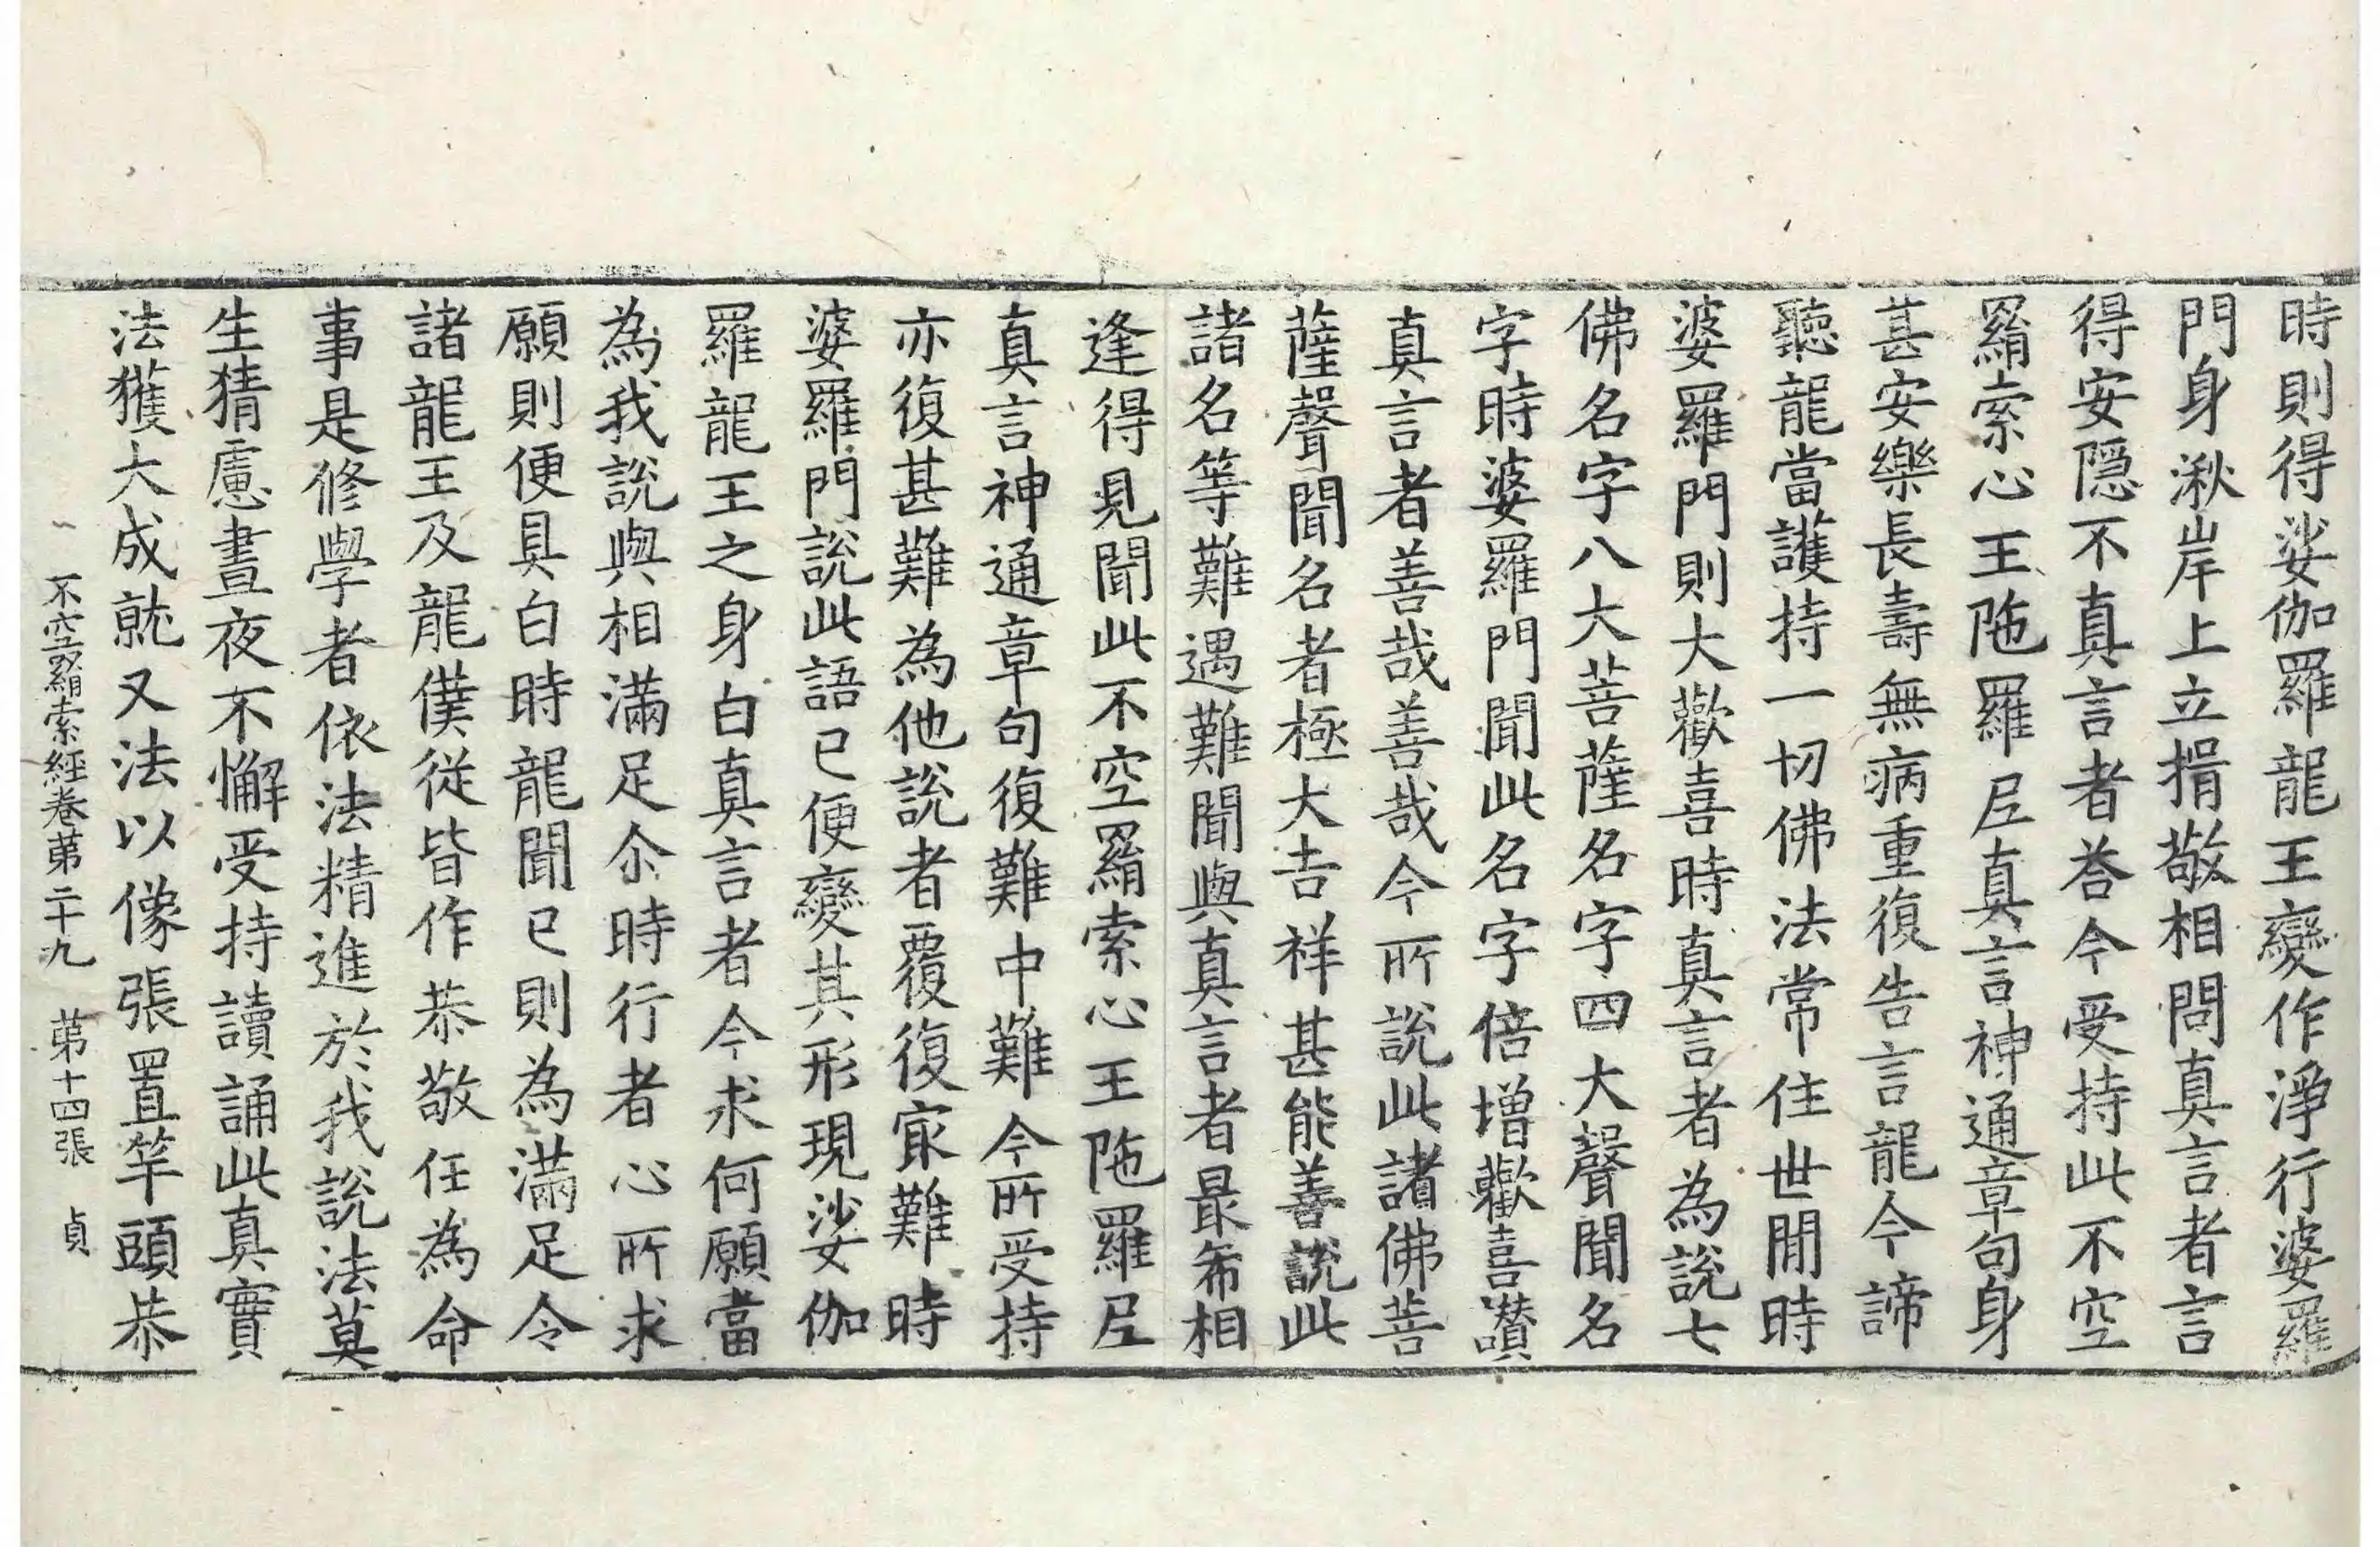 時則得娑伽羅龍王變作淨行婆羅
門身湫岸上立揖敬相問真言者言
得安隱不真言者荅今受持此不空
羂索心王陁羅𡰱真言神通章句身
甚安樂長壽無病重復告言龍今諦
聽龍當護持一切佛法常住世間時
婆羅門則大歡喜時真言者為說七
佛名字八大菩薩名字四大聲聞名
字時婆羅門聞此名字倍增歡喜讃
真言者善哉善哉今所說此諸佛菩
薩聲聞名者極大吉祥甚能善說此
諸名等難遇難聞與真言者最希相
逢得見聞此不空羂索心王陁羅𡰱
真言神通章句復難中難今所受持
亦復甚難為他說者覆復㝡難時
婆羅門說此語已便變其形現娑伽
羅龍王之身白真言者今求何願當
為我說與相滿足尒時行者心所求
願則便具白時龍聞已則為滿足令
諸龍王及龍僕從皆作恭敬任為命
事是修學者依法精進於我說法莫
生猜慮晝夜不懈受持讀誦此真實
法獲大成就又法以像張置竿頭恭
不空羂索經卷第二十九　第十四張　貞